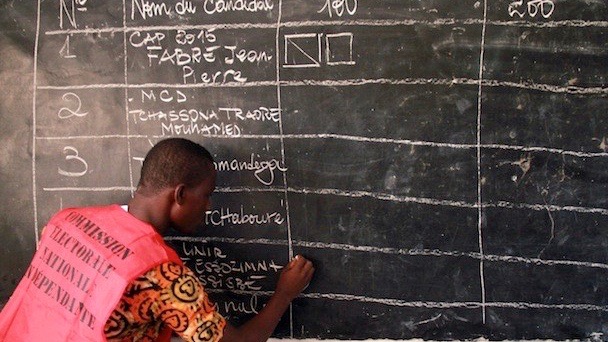 N° Nom du Candidat 100 200
1 CAP 2015
FABRE Jean-
Pierre
2 MCD
TCHASSONA TRAORE
MOUHAMED
3
TCHABOURE
UNIR
COMMISSION
ELECTORALE
NATIONALE
INDEPENDANTE